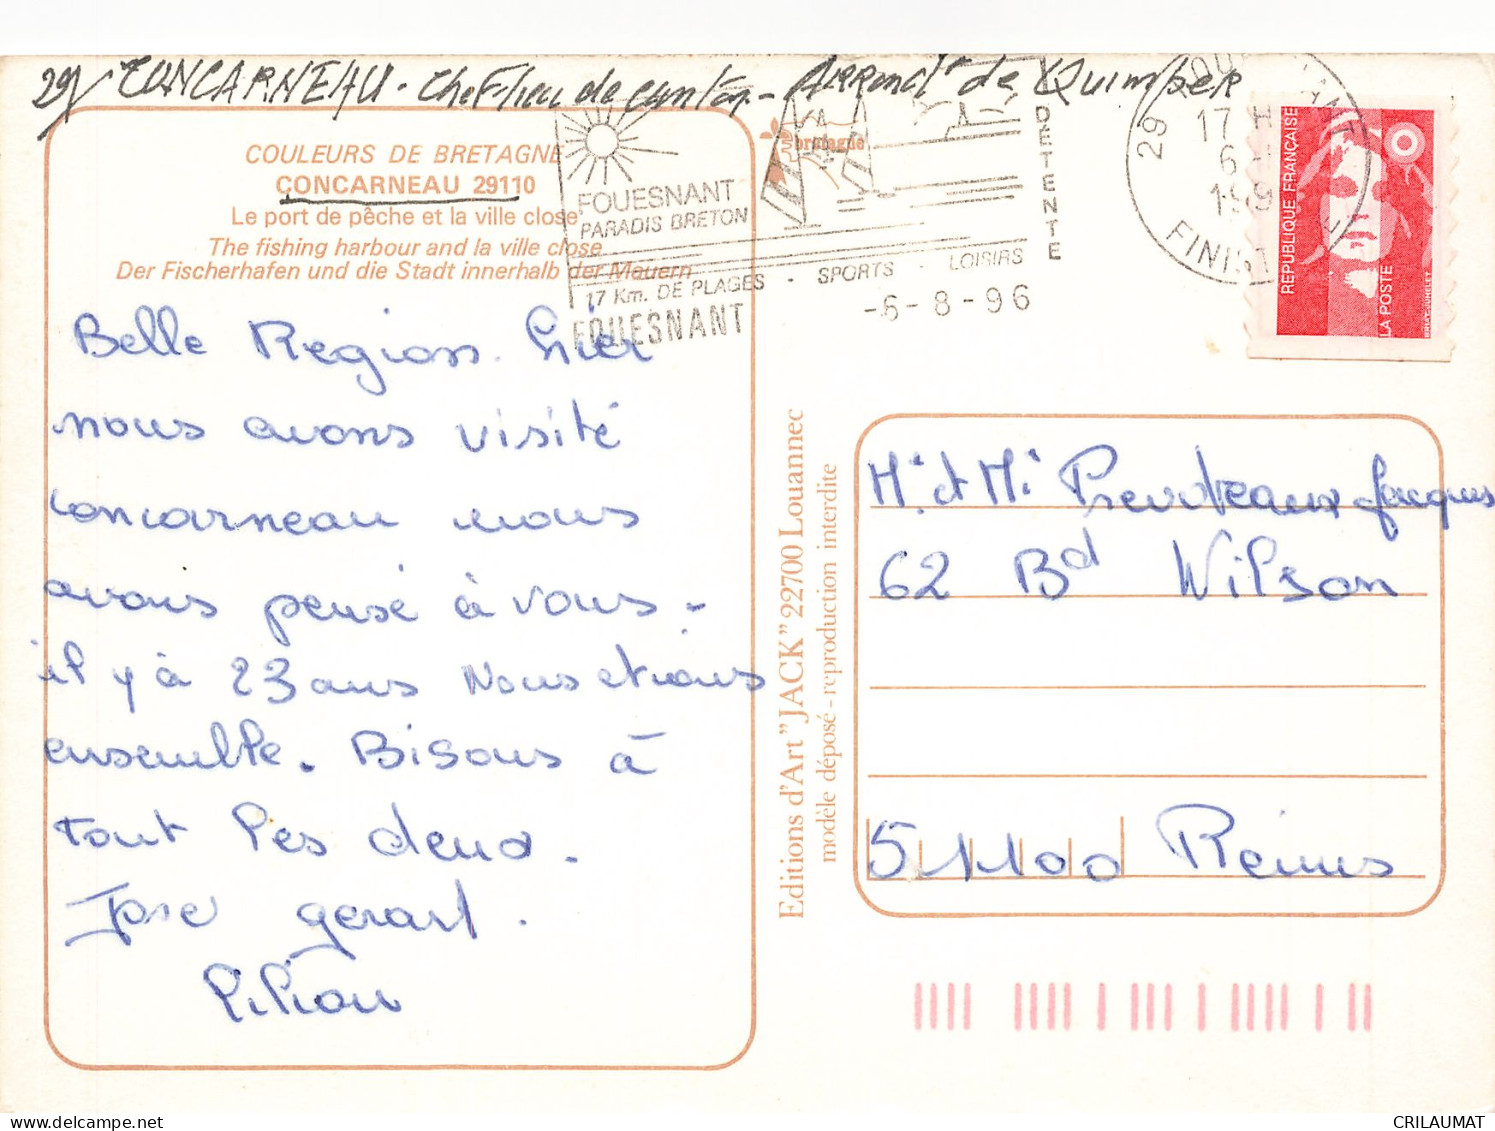 29/ CONCARNEAU - chef-lieu de canton - Arrondt de Quimper
COULEURS DE BRETAGNE
CONCARNEAU 29110
Le port de pêche et la ville close
The fishing harbour and la ville close
Der Fischerhafen und die Stadt innerhalb der Mauern
bretagne
FOUESNANT
PARADIS BRETON
17 Km. DE PLAGES - SPORTS - LOISIRS
FOUESNANT
DETENTE
-6-8-96
29
17 H
6-
199
FINIST
REPUBLIQUE FRANÇAISE
LA POSTE
Belle Region. hier
nous avons visité
concarneau nous
avons pensé à vous -
il y à 23 ans Nous etions
ensemble. Bisous à
tout les deux.
Jose gerard.
Lilian
Editions d'Art "JACK" 22700 Louannec
modèle déposé - reproduction interdite
Mr et Me Prevoteaux Jacques
62 Bd Wilson
51100 Reims
CRILAUMAT